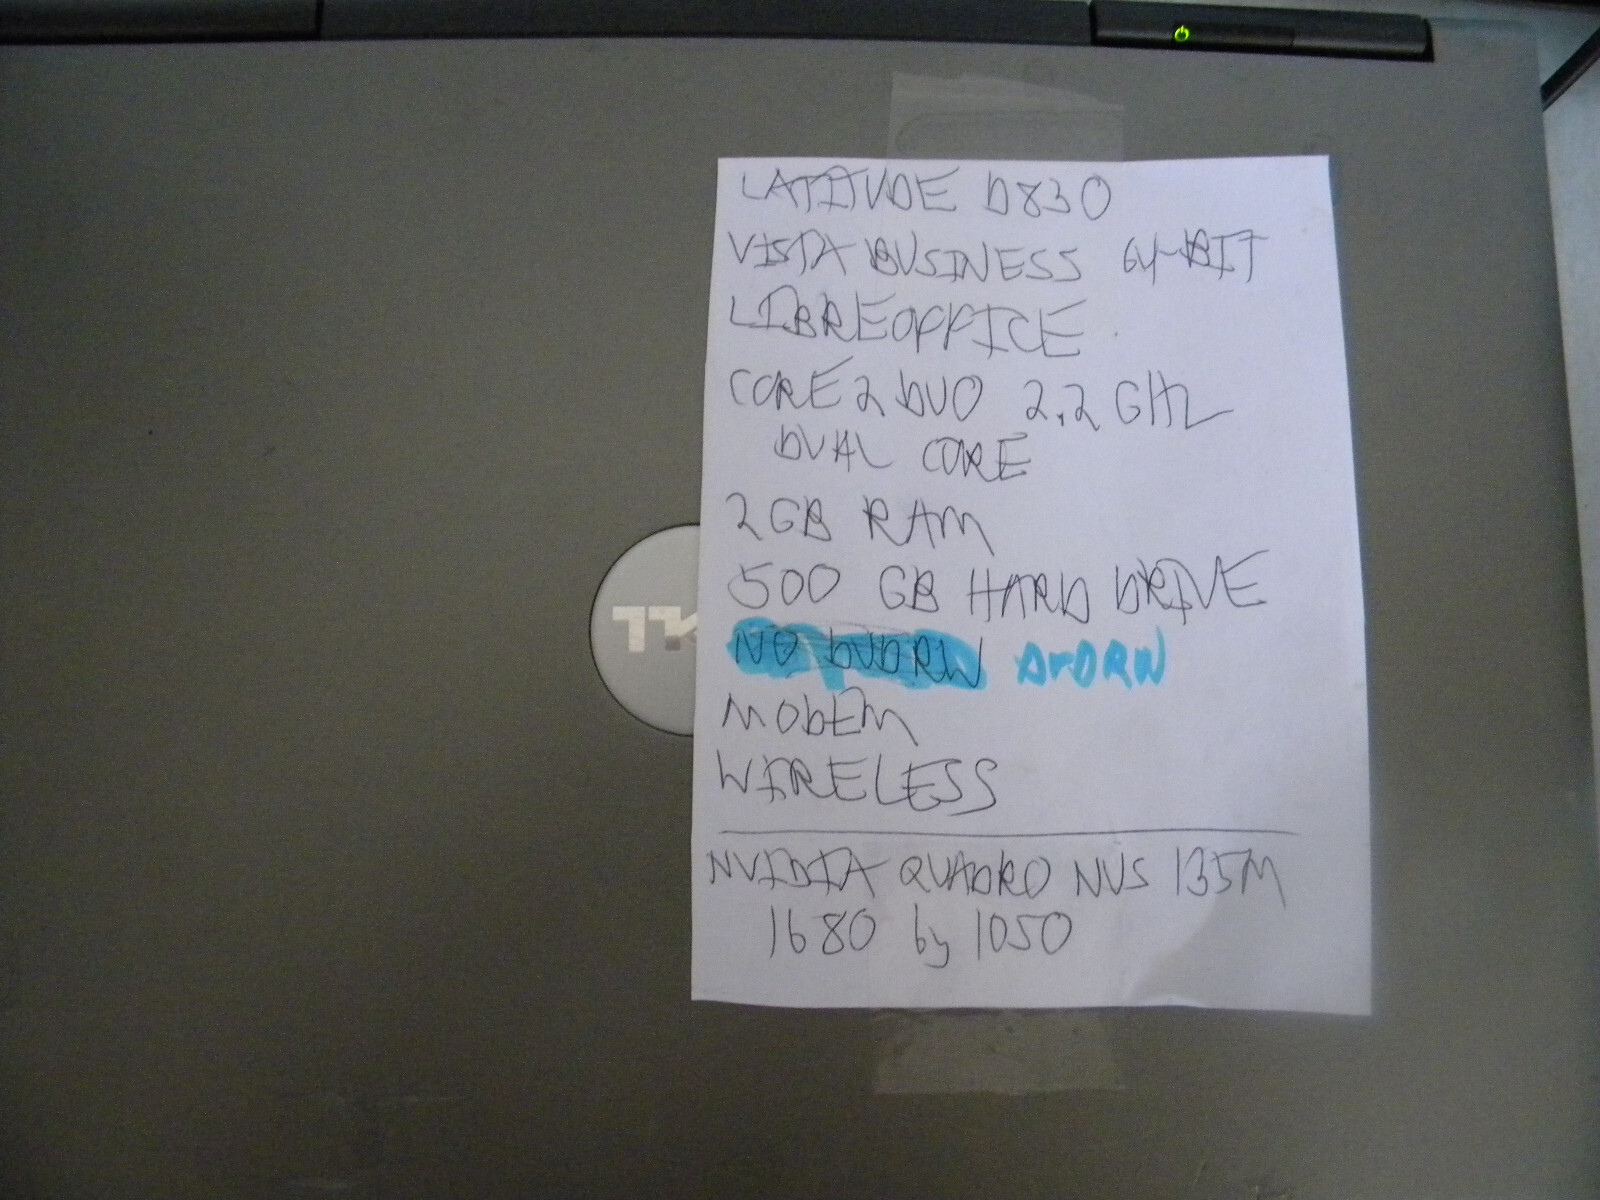 LATITUDE D830
VISTA BUSINESS 64-BIT
LIBREOFFICE
CORE 2 DUO 2.2 GHZ
DUAL CORE
2GB RAM
500 GB HARD DRIVE
NO DVDRW DVDRW
MODEM
WIRELESS
NVIDIA QUADRO NVS 135M
1680 by 1050